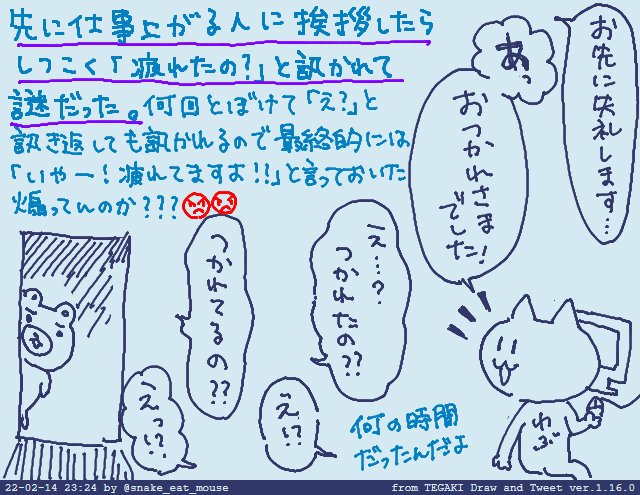 先に仕事上がる人に挨拶したら
しつこく「疲れたの?」と訊かれて
謎だった。何回とぼけて「え?」と
訊き返しても訊かれるので最終的には
「いやー!疲れてますよ!!」と言っておいた
煽ってんのか???
お先に失礼します…
あっ
おつかれさま
でした!
え…?
つかれたの??
え!?
つかれてるの??
えっ!?
わぶ
何の時間
だったんだよ
22-02-14 23:24 by @snake_eat_mouse
from TEGAKI Draw and Tweet ver.1.16.0